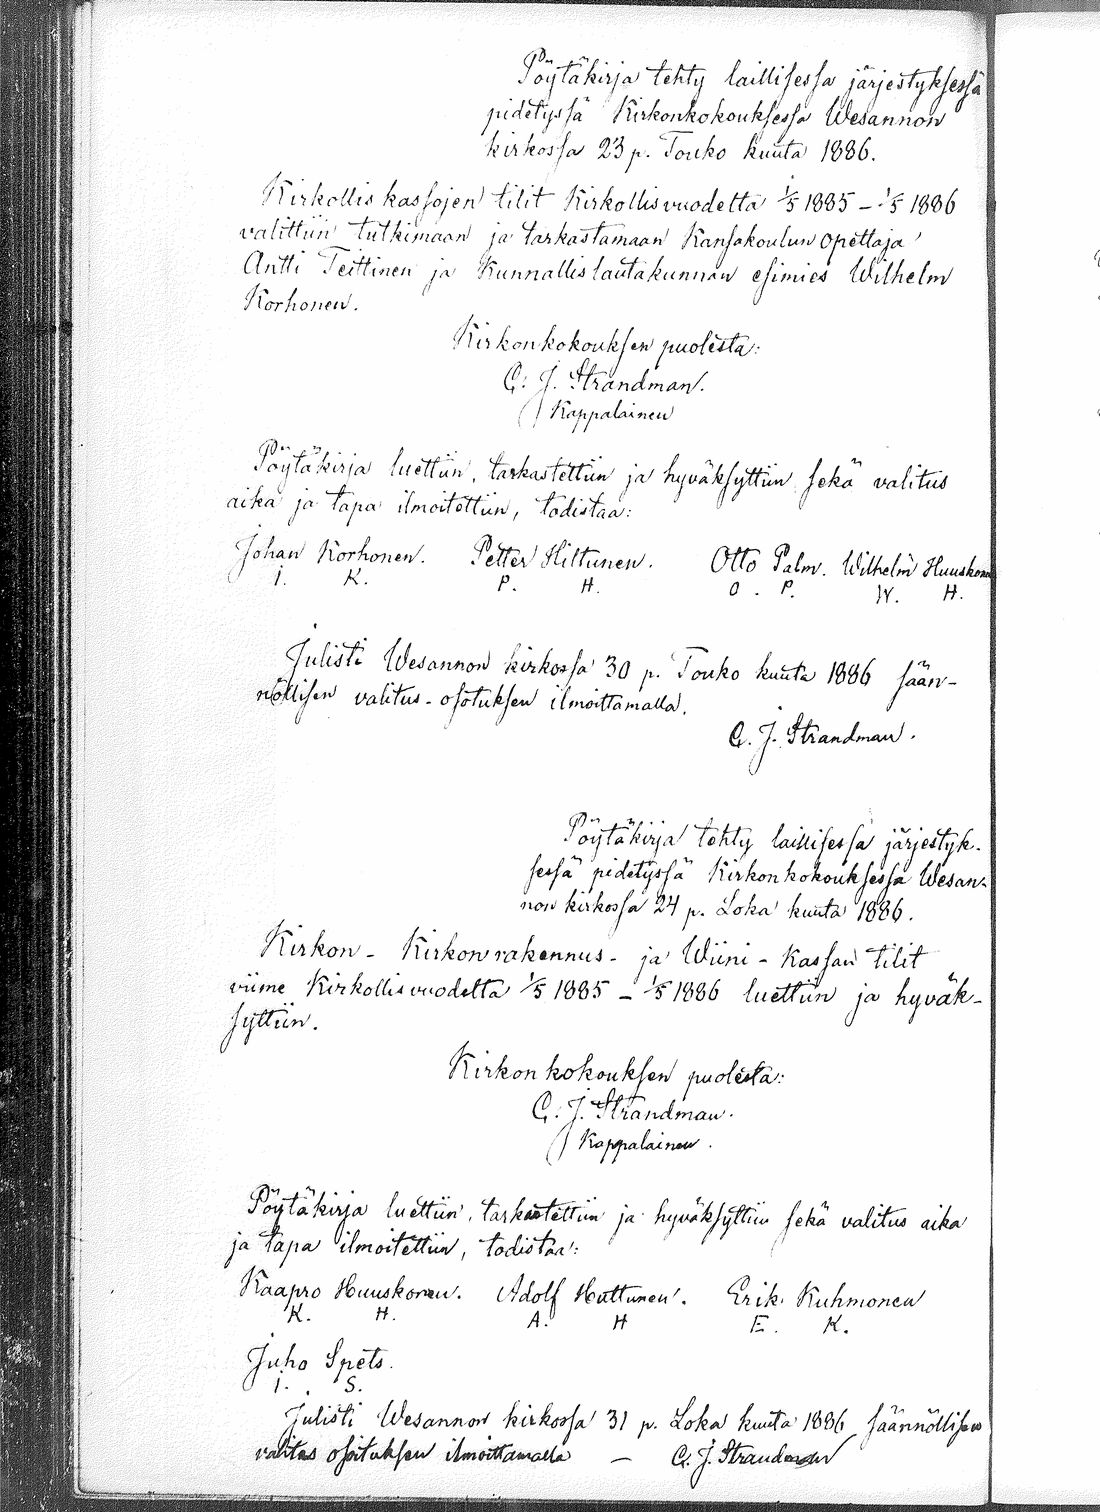 Pöytäkirja tehty laillisessa järjestyksessä
pidetyssä Kirkonkokouksessa Wesannon
kirkossa 23 p. Touko kuuta 1886.
Kirkollis kassojen tilit Kirkollisvuodetta 1/5 1885 – 1/5 1886
valittiin tutkimaan ja tarkastamaan Kansakoulun opettaja
Antti Teittinen ja Kunnallislautakunnan esimies Wilhelm
Korhonen.
Kirkonkokouksen puolesta:
C. J. Strandman.
Kappalainen
Pöytäkirja luettiin, tarkastettiin ja hyväksyttiin sekä valitus
aika ja tapa ilmoitettiin, todistaa:
Johan Korhonen. Petter Hiltunen. Otto Palm. Wilhelm Huuskonen
I. K. P. H. O. P. W. H.
Julisti Wesannon kirkossa 30 p. Touko kuuta 1886 sään-
nöllisen valitus-osotuksen ilmoittamalla.
C. J. Strandman.
Pöytäkirja tehty laillisessa järjestyk-
sessä pidetyssä Kirkonkokouksessa Wesan-
non kirkossa 24 p. Loka kuuta 1886.
Kirkon- Kirkonrakennus- ja Wiini-Kassan tilit
viime Kirkollisvuodetta 1/5 1885 – 1/5 1886 luettiin ja hyväk-
syttiin.
Kirkonkokouksen puolesta:
C. J. Strandman.
Kappalainen.
Pöytäkirja luettiin, tarkastettiin ja hyväksyttiin sekä valitus aika
ja tapa ilmoitettiin, todistaa:
Kaapro Huuskonen. Adolf Huttunen. Erik Kuhmonen
K. H. A. H E. K.
Juho Spets.
I. S.
Julisti Wesannon kirkossa 31 p. Loka kuuta 1886 säännöllisen
valitus osituksen ilmoittamalla – C. J. Strandman